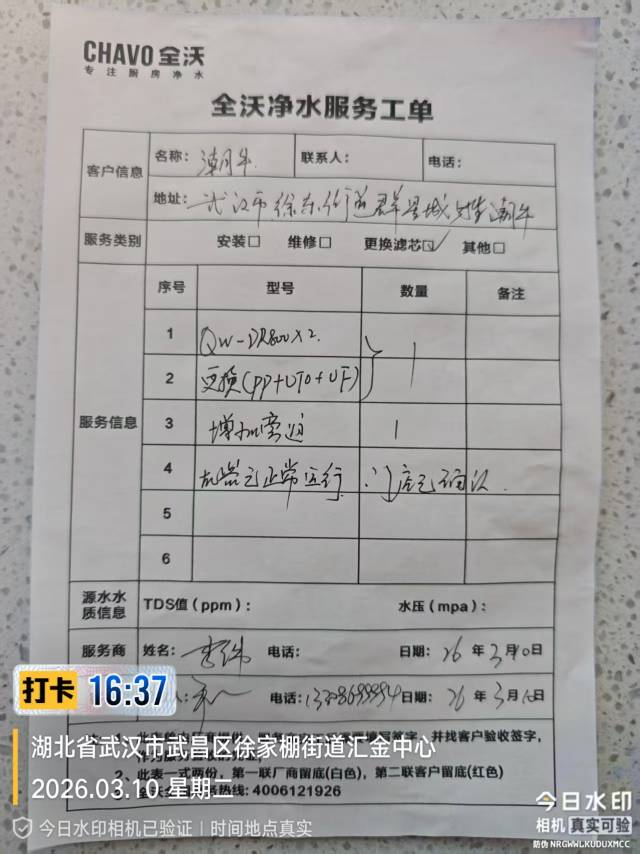 CHAVO 全沃
专注厨房净水
全沃净水服务工单
客户信息
名称: 潮牛
联系人:
电话:
地址: 武汉市徐东街道群星城 潮牛
服务类别
安装□ 维修□ 更换滤芯☑ 其他□
服务信息
序号 型号 数量 备注
1 QW-DR800X2
2 更换(PP+UTO+UF) 1
3 增加旁通 1
4 机器已正常运行, 门店已确认.
5
6
源水水质信息
TDS值(ppm):
水压(mpa):
服务商
姓名: 电话: 日期: 26 年 3月10日
电话: 日期: 26 年 3月10日
并找客户验收签字,
2、此表一式两份,第一联厂商留底(白色),第二联客户留底(红色)
热线: 4006121926
打卡 16:37
湖北省武汉市武昌区徐家棚街道汇金中心
2026.03.10 星期二
今日水印相机已验证 | 时间地点真实
今日水印
相机 真实可验
防伪 NRGWWLKUDUXMCC